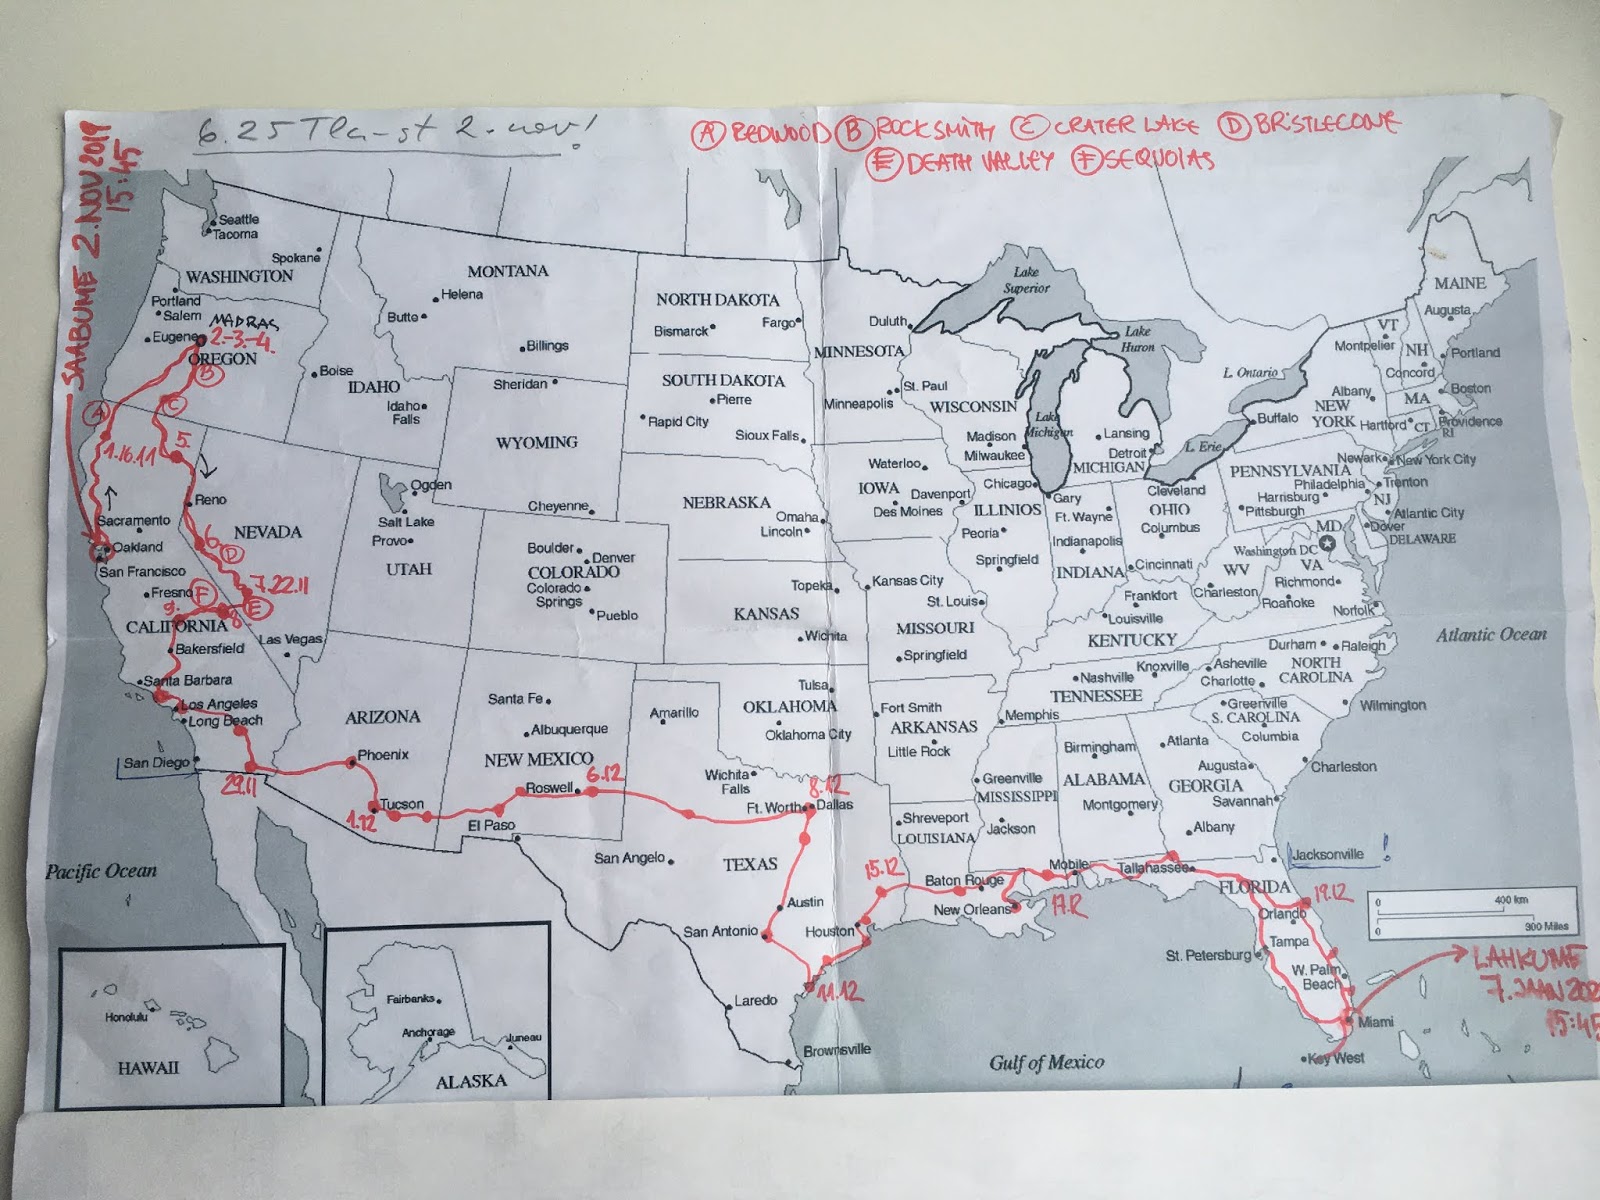 6.25 Tla-st 2. nov!
SAABUME 2.NOV 2019
15:45
Ⓐ REDWOOD Ⓑ ROCK SMITH Ⓒ CRATER LAKE Ⓓ BRISTLECONE
Ⓔ DEATH VALLEY Ⓕ SEQUOIAS
Seattle
Tacorna
Spokane
WASHINGTON
Portland
Salem
Eugene
MADRAS
2.-3.-4.
OREGON
B
C
A
1.16.11
5.
MONTANA
Helena
Butte
Billings
Boise
IDAHO
Idaho
Falls
Sheridan
WYOMING
Cheyenne
NORTH DAKOTA
Bismarck
Fargo
SOUTH DAKOTA
Pierre
Rapid City
Sioux Falls
NEBRASKA
Omaha
Lincoln
Duluth
MINNESOTA
St. Paul
Minneapolis
WISCONSIN
Madison
Milwaukee
Lake
Superior
Lake
Huron
Lake
Michigan
L. Ontario
L. Erie
Lansing
Detroit
MICHIGAN
Waterloo
IOWA
Davenport
Des Moines
Chicago
ILLINIOS
Peoria
Springfield
Gary
Ft. Wayne
Indianapolis
INDIANA
Cleveland
OHIO
Columbus
Cincinnati
MAINE
Augusta
VT
Montpelier
NH
Concord
Portland
Albany
NEW
YORK
Buffalo
MA
Boston
Hartford
CT
Providence
RI
PENNSYLVANIA
Newark
New York City
Philadelphia
Trenton
Harrisburg
NJ
Pittsburgh
Atlantic City
MD
Dover
DELAWARE
Washington DC
WV
VA
Charleston
Richmond
Roanoke
Norfolk
Reno
NEVADA
Sacramento
Oakland
San Francisco
6.
D
7.22.11
Fresno
F
E
8.
9.
CALIFORNIA
Bakersfield
Las Vegas
Santa Barbara
Los Angeles
Long Beach
San Diego
29.11
Ogden
Salt Lake
Provo
UTAH
Boulder
Denver
COLORADO
Colorado
Springs
Pueblo
Topeka
KANSAS
Wichita
Kansas City
St. Louis
MISSOURI
Springfield
Frankfort
Louisville
KENTUCKY
Knoxville
Nashville
TENNESSEE
Memphis
Asheville
Charlotte
Durham
Raleigh
NORTH
CAROLINA
Wilmington
Greenville
S. CAROLINA
Columbia
Charleston
ARIZONA
Phoenix
Tucson
1.12
Santa Fe
Albuquerque
NEW MEXICO
Roswell
6.12
El Paso
Amarillo
Tulsa
OKLAHOMA
Oklahoma City
Fort Smith
ARKANSAS
Little Rock
Wichita
Falls
8.12
Ft. Worth
Dallas
TEXAS
San Angelo
Austin
San Antonio
Houston
15.12
11.12
Laredo
Brownsville
Shreveport
LOUISIANA
Baton Rouge
New Orleans
Greenville
MISSISSIPPI
Jackson
Birmingham
ALABAMA
Montgomery
Mobile
17.12
Atlanta
Augusta
GEORGIA
Savannah
Albany
Jacksonville !
Tallahassee
FLORIDA
19.12
Orlando
Tampa
St. Petersburg
W. Palm
Beach
Miami
Key West
Pacific Ocean
Atlantic Ocean
Gulf of Mexico
0 400 km
0 300 Miles
LAHKUME
7. JAAN 202
15:45
Honolulu
HAWAII
Fairbanks
Anchorage
Juneau
ALASKA